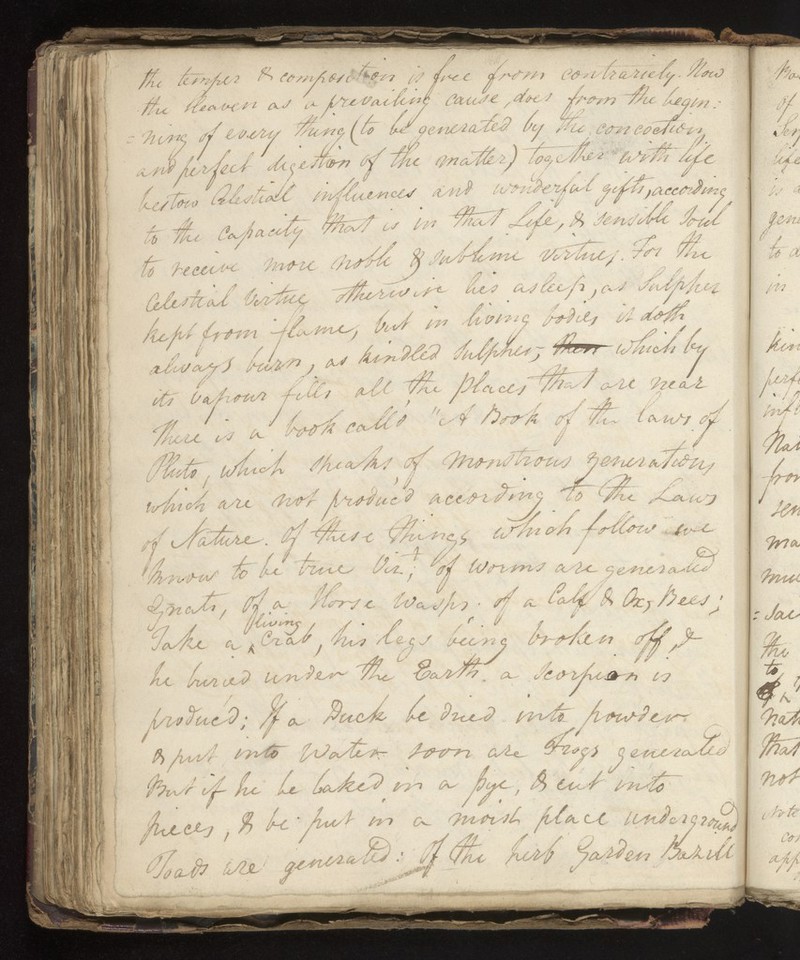 the temper & composition is free from contrariety. Now
the Heaven as a prevailing cause, does from the begin:
=ning of every thing (to be generated by the concoction,
and perfect digestion of the matter) together with life
bestow Celestial influences and wonderful gifts, according
to the capacity that is in that Life, & sensible Soul
to receive more noble & sublime virtues. For the
Celestial Virtue otherwise lies asleep, as Sulpher
kept from flame, but in living bodies it doth
always burn, as kindled Sulpher, then which by
its vapour fills all the places that are near
There is a book call'd "A Book of the laws of
Pluto, which speaks of monstrous generations
which are not produc'd according to the Laws
of Nature. Of these things which follow we
know to be true Vizt; of worms are generated
Gnats, of a Horse Wasps. of a Calf & Ox, Bees;
Take a living Crab, his legs being broken off, &
he buried under the Earth. a scorpion is
produc'd; If a Duck be dried into powder
& put into Water soon are Frogs generated
But if he be baked in a pye, & cut into
pieces, & be put in a moist place underground
Toads are generated: Of the herb Garden Bazill
Ma
of
Ser
life
is a
gene
to a
in
kin
perfe
infl
Nat
from
sen
ma
mu
= Sac
the
to
nat
that
not
Note
con
app